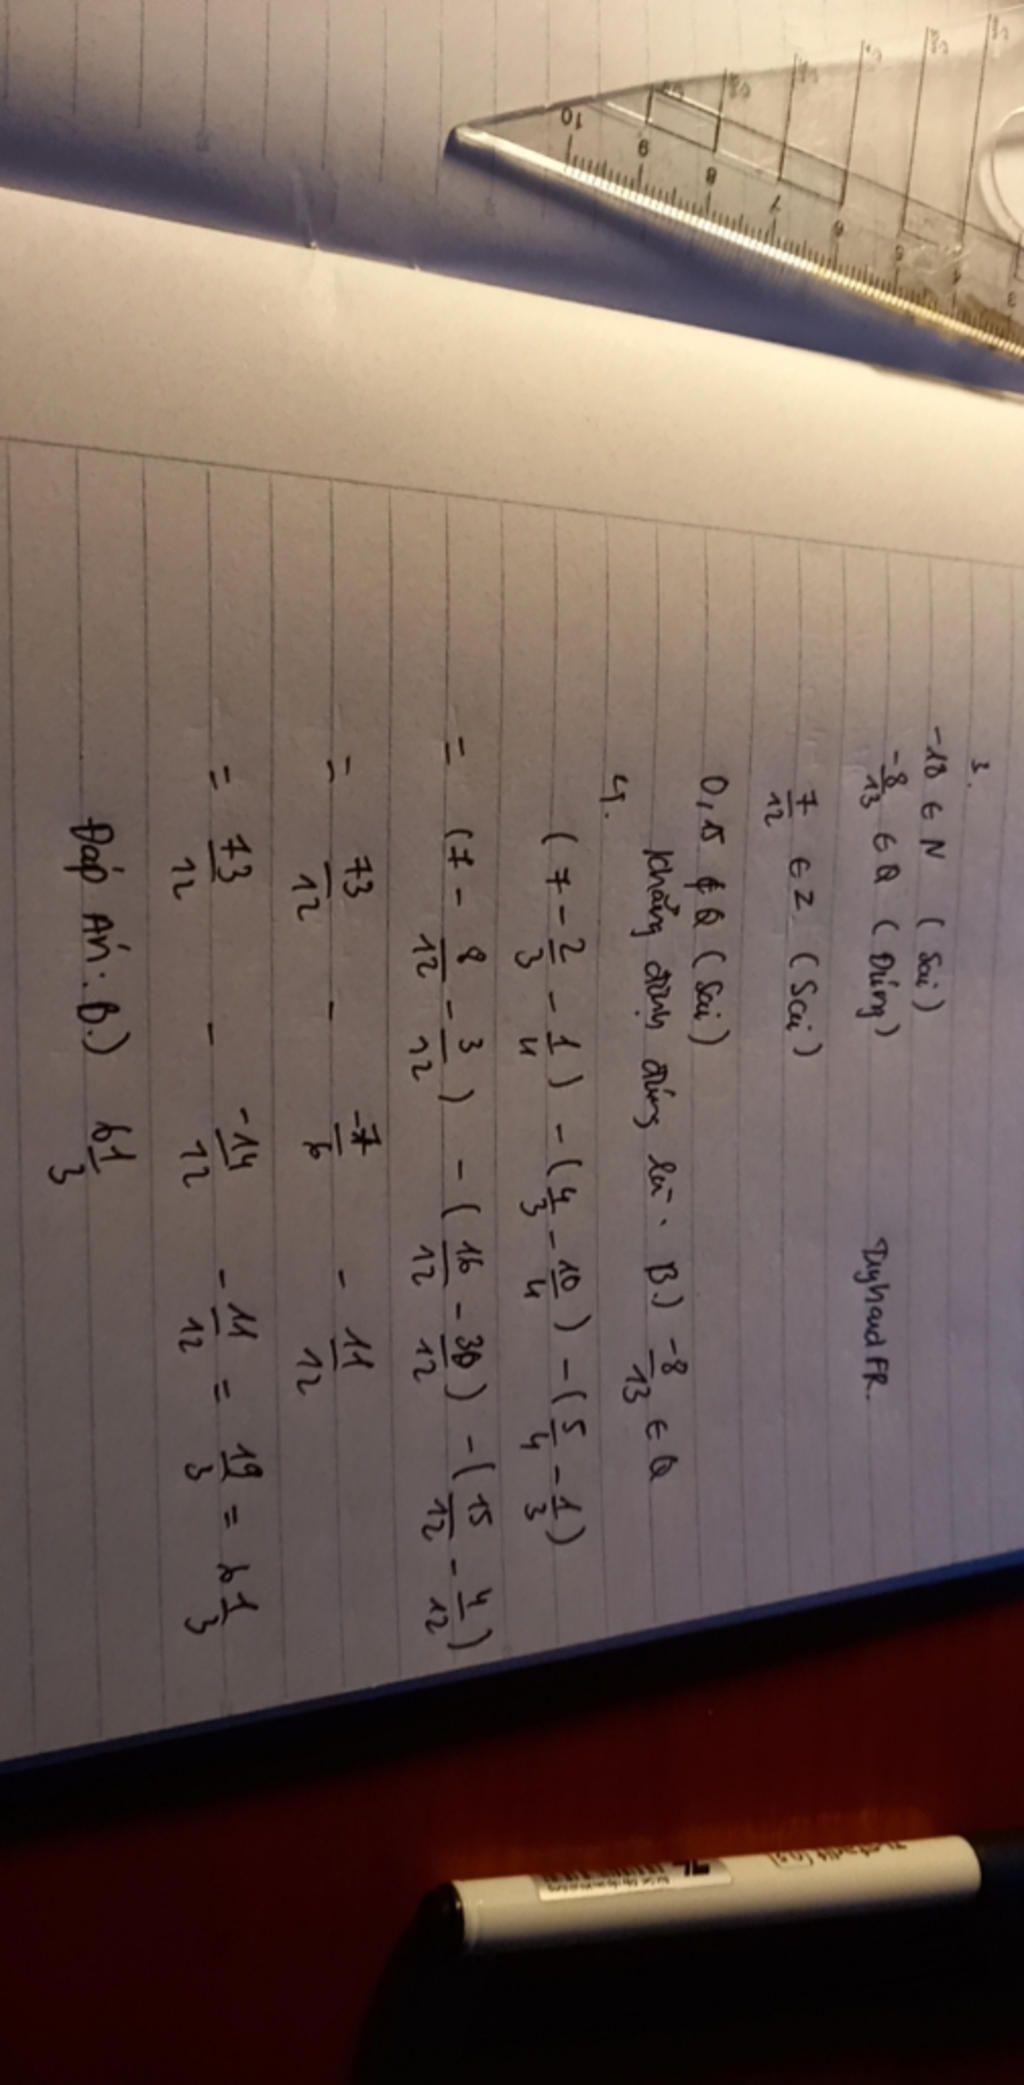 3.
-18 ∈ N (Sai)
-8/13 ∈ Q (Đúng)
7/12 ∈ Z (Sai)
0,15 ∉ Q (Sai)
Khẳng định đúng là. B.) -8/13 ∈ Q
4.
(7 - 2/3 - 1/4) - (4/3 - 10/4) - (5/4 - 1/3)
= (7 - 8/12 - 3/12) - (16/12 - 30/12) - (15/12 - 4/12)
= 73/12 - -7/6 - 11/12
= 73/12 - -14/12 - 11/12 = 19/3 = 6 1/3
Đáp Án: B.) 6 1/3
10 9 8 7 6 5 4 3